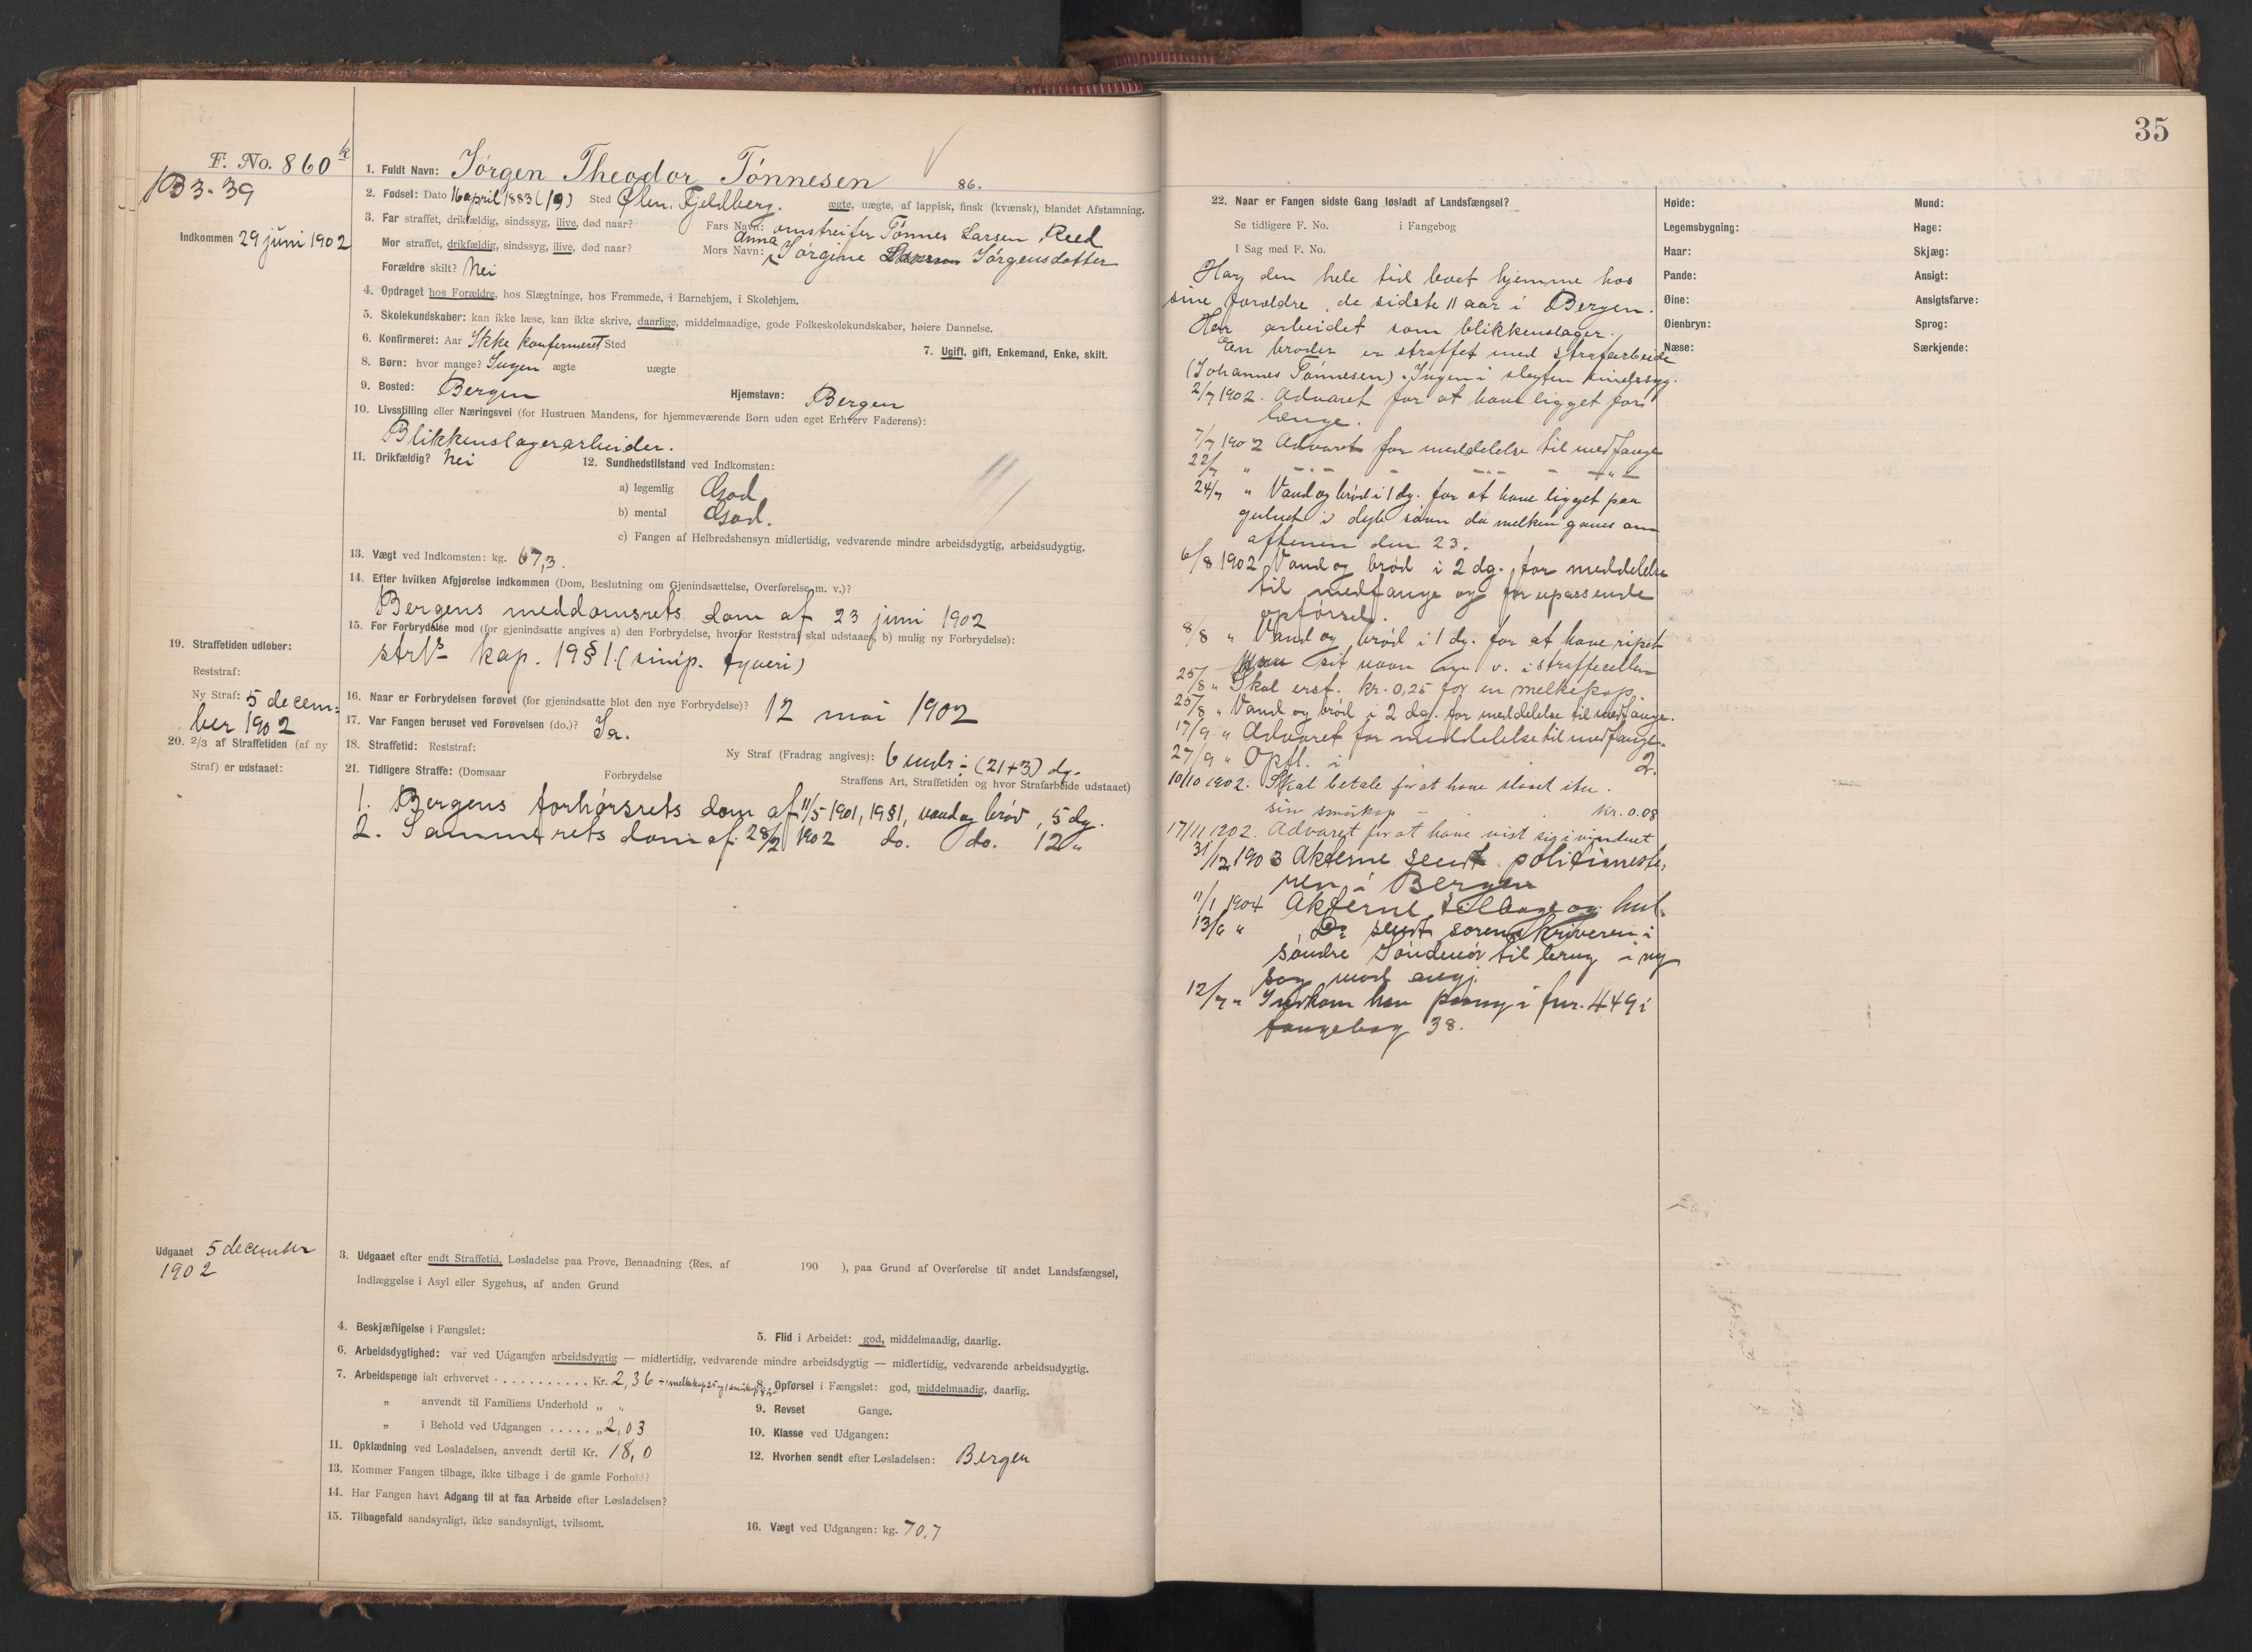 F. No. 860 k
B 3-39
Indkommen 29 juni 1902
1. Fuldt Navn: Jørgen Theodor Tønnesen 86.
2. Fødsel: Dato 16 april 1883 (19) Sted Ølen. Fjeldberg. ægte, uægte, af lappisk, finsk (kvænsk), blandet Afstamning.
3. Far straffet, drikfældig, sindssyg, ilive, død naar? Fars Navn: omstreifer Tønnes Larsen Reed
Mor straffet, drikfældig, sindssyg, ilive, død naar? Mors Navn: Anna Jørgine Jørgensdatter
Forældre skilt? Nei
4. Opdraget hos Forældre, hos Slægtninge, hos Fremmede, i Barnehjem, i Skolehjem.
5. Skolekundskaber: kan ikke læse, kan ikke skrive, daarlige, middelmaadige, gode Folkeskolekundskaber, høiere Dannelse.
6. Konfirmeret: Aar Ikke konfermeret Sted
7. Ugift, gift, Enkemand, Enke, skilt.
8. Børn: hvor mange? Ingen ægte uægte
9. Bosted: Bergen Hjemstavn: Bergen
10. Livsstilling eller Næringsvei (for Hustruen Mandens, for hjemmeværende Børn uden eget Erhverv Faderens):
Blikkenslagerarbeider.
11. Drikfældig? Nei 12. Sundhedstilstand ved Indkomsten:
a) legemlig God
b) mental God.
c) Fangen af Helbredshensyn midlertidig, vedvarende mindre arbeidsdygtig, arbeidsudygtig.
13. Vægt ved Indkomsten: kg. 67,3.
14. Efter hvilken Afgjørelse indkommen (Dom, Beslutning om Gjenindsættelse, Overførelse m. v.)?
Bergens meddomsrets dom af 23 juni 1902
15. For Forbrydelse mod (for gjenindsatte angives a) den Forbrydelse, hvorfor Reststraf skal udstaaes, b) mulig ny Forbrydelse):
kap. 19 § 1. (simp. tyveri)
16. Naar er Forbrydelsen forøvet (for gjenindsatte blot den nye Forbrydelse)? 12 mai 1902
17. Var Fangen beruset ved Forøvelsen (do.)? Ja.
18. Straffetid: Reststraf: Ny Straf (Fradrag angives): 6 mdr ÷ (21+3) dg.
19. Straffetiden udløber:
Reststraf:
Ny Straf: 5 decem-
ber 1902
20. 2/3 af Straffetiden (af ny
Straf) er udstaaet:
21. Tidligere Straffe: (Domsaar Forbrydelse Straffens Art, Straffetiden og hvor Strafarbeide udstaaet)
1. Bergens forhørsrets dom af 11/5 1901, 19§1, vand og brød, 5 dg.
2. Samme rets dom af 28/2 1902 do. do. 12 "
Udgaaet 5 december
1902
3. Udgaaet efter endt Straffetid, Løsladelse paa Prøve, Benaadning (Res. af 190 ), paa Grund af Overførelse til andet Landsfængsel,
Indlæggelse i Asyl eller Sygehus, af anden Grund
4. Beskjæftigelse i Fængslet:
5. Flid i Arbeidet: god, middelmaadig, daarlig.
6. Arbeidsdygtighed: var ved Udgangen arbeidsdygtig — midlertidig, vedvarende mindre arbeidsdygtig — midlertidig, vedvarende arbeidsudygtig.
7. Arbeidspenge ialt erhvervet . . . . . . . . . . . Kr. 2,36 ÷ melkekop 25 og smørkop 8 ør
8. Opførsel i Fængslet: god, middelmaadig, daarlig.
" anvendt til Familiens Underhold " "
9. Revset Gange.
" i Behold ved Udgangen . . . . . " 2,03
10. Klasse ved Udgangen:
11. Opklædning ved Løsladelsen, anvendt dertil Kr. 18,0
12. Hvorhen sendt efter Løsladelsen: Bergen
13. Kommer Fangen tilbage, ikke tilbage i de gamle Forhold?
14. Har Fangen havt Adgang til at faa Arbeide efter Løsladelsen?
15. Tilbagefald sandsynligt, ikke sandsynligt, tvilsomt.
16. Vægt ved Udgangen: kg. 70,7
35
22. Naar er Fangen sidste Gang løsladt af Landsfængsel?
Se tidligere F. No. i Fangebog
I Sag med F. No.
Har den hele tid boet hjemme hos
sine forældre, de sidste 11 aar i Bergen.
Har arbeidet som blikkenslager.
En broder er straffet med strafarbeide
(Johannes Tønnesen). Ingen i slegten sindssyg.
2/7 1902. Advaret for at have ligget for
længe.
7/7 1902 Advaret for meddelelse til medfange
22/7 " -"- -"- - -"-
24/7 " Vand og brød i 1 dg. for at have ligget paa
gulvet i dyb søvn da melken gaves om
aftenen den 23.
6/8 1902 Vand og brød i 2 dg. for meddelelse
til medfange og for upassende
opførsel.
8/8 " Vand og brød i 1 dg. for at have ripet
sit navn m. v. i straffecellen
25/8 " Skal erst. kr. 0,25 for en melkekop.
25/8 " Vand og brød i 2 dg. for meddelelse til medfange.
17/9 " Advaret for meddelelse til medfange.
27/9 " Opfl. i 2.
10/10 1902. Skal betale for at have slaaet itu
sin smørkop - . . kr. 0.08
17/11 1902. Advaret for at have vist sig i vinduet
31/12 1903 Akterne sendt politimeste-
ren i Bergen
11/1 1904 Akterne tilbage og hul.
13/6 " Do sendt sorenskriveren i
søndre Søndmør til brug i ny
sag mod angj.
12/7 " Indkom her paany i fnr. 449 i
fangebog 38.
Høide:
Legemsbygning:
Haar:
Pande:
Øine:
Øienbryn:
Næse:
Mund:
Hage:
Skjæg:
Ansigt:
Ansigtsfarve:
Sprog:
Særkjende: